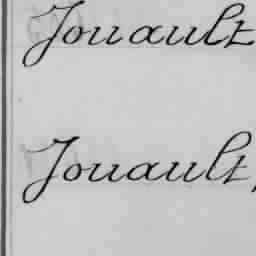 Jouault
Jouault,